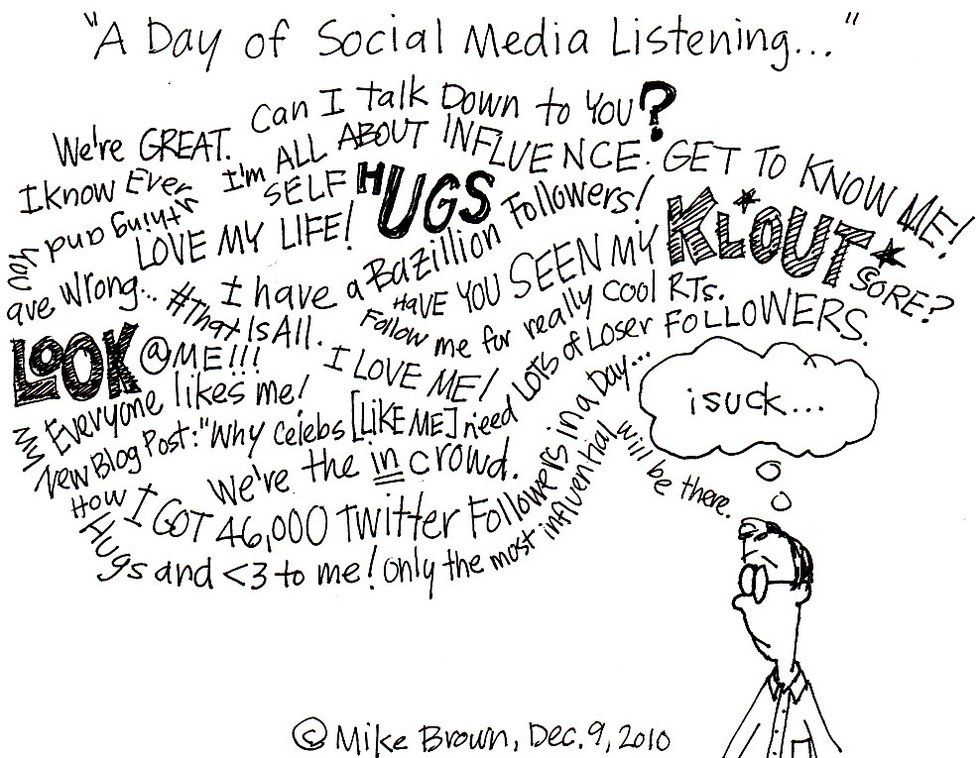 "A Day of Social Media Listening..."
Can I talk Down to You?
We're GREAT.
I'm ALL ABOUT INFLUENCE.
GET TO KNOW ME!
I know Everything and you are wrong...
SELF HUGS
LOVE MY LIFE!
I have a Bazillion Followers!
HAVE YOU SEEN MY KLOUT SORE?
#ThatIsAll.
Follow me for really cool RTs.
LOOK @ME!!!
I LOVE ME!
Lots of Loser FOLLOWERS.
Everyone likes me!
My New Blog Post: "Why Celebs [LIKE ME] need
We're the in crowd.
How I GOT 46,000 Twitter Followers in a Day...
Hugs and <3 to me!
Only the most influential will be there.
isuck...
© Mike Brown, Dec. 9, 2010